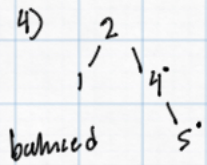 4) 2
1 4
balanced 5